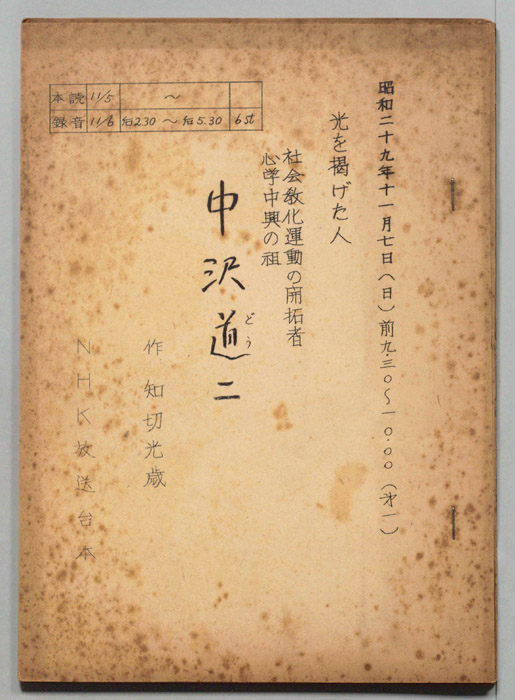 昭和二十九年十一月七日(日)前九.三〇〜一〇.〇〇(才一)
光を掲げた人
社会教化運動の開拓者
心学中興の祖
中沢道二
どう
作 知切光歳
NHK放送台本
本読 11/5 〜
録音 11/6 后2.30 〜 后5.30 6st